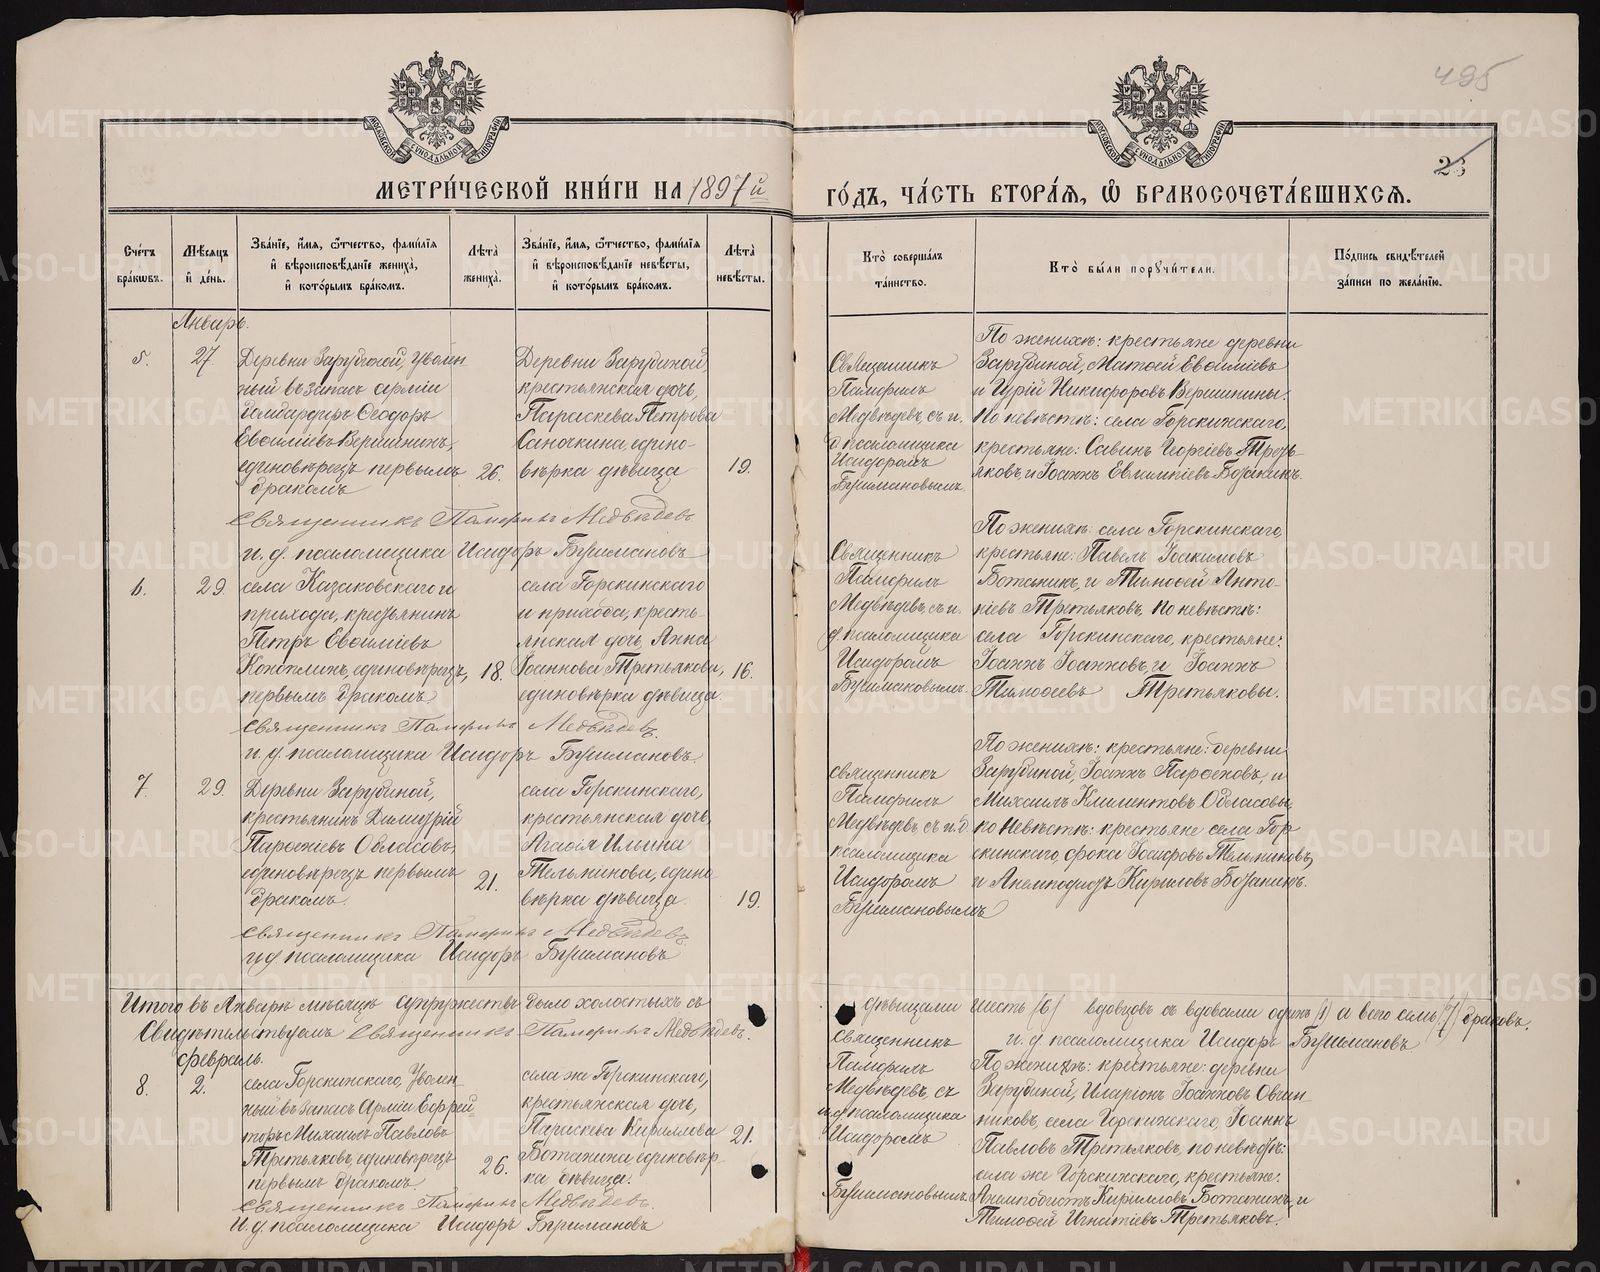 495
23
МЕТРИ́ЧЕСКОЙ КНИ́ГИ НА 1897й
ГО́ДЪ, ЧА́СТЬ ВТОРА́Я, Ѽ БРАКОСОЧЕТА́ВШИХСЯ.
МОСКОВСКОЙ СѴНОДАЛЬНОЙ ТИПОГРАФІИ
МОСКОВСКОЙ СѴНОДАЛЬНОЙ ТИПОГРАФІИ
Сче́тъ бра́кѡвъ.
Мѣ́сяцъ и҆ де́нь.
Зва́нїе, и҆́мя, ѻ҆́тчество, фами́лїя и҆ вѣроисповѣ́данїе жениха̀, и҆ кото́рымъ бра́комъ.
Лѣ́та жениха̀.
Зва́нїе, и҆́мя, ѻ҆́тчество, фами́лїя и҆ вѣроисповѣ́данїе невѣ́сты, и҆ кото́рымъ бра́комъ.
Лѣ́та невѣ́сты.
Кто̀ соверша́лъ та́инство.
Кто̀ бы́ли поручи́тели.
По́дпись свидѣ́телей за́писи по жела́нїю.
Январь.
5.
27.
Деревни Зарубиной, уволен
ный въ запасъ арміи
Бомбардиръ Ѳеодоръ
Евѳиміевъ Вершининъ,
единовѣрецъ первымъ
бракомъ
26.
Деревни Зарубиной,
крестьянская дочь,
Параскева Петрова
Саночкина, едино-
вѣрка дѣвица
19.
Священникъ
Памфилъ
Медвѣдевъ, съ и.
д. псаломщика
Исидоромъ
Бушмановымъ
По женихѣ: крестьяне деревни
Зарубиной, Матѳей Евѳиміевъ
и Гурій Никифоровъ Вершинины.
По невѣстѣ: села Горскинскаго,
крестьяне: Савинъ Георгіевъ Треть-
яковъ, и Іоаннъ Евлампіевъ Ботанинъ.
Священникъ Памфилъ Медвѣдевъ
и. д. псаломщика Исидоръ Бушмановъ
6.
29.
села Казаковскаго и
прихода, крестьянинъ
Петръ Евѳиміевъ
Коноплинъ, единовѣрецъ,
первымъ бракомъ
18.
села Горскинскаго
и прихода, кресть-
янская дочь, Анна
Іоаннова Третьякова,
единовѣрка дѣвица.
16.
Священникъ
Памфилъ
Медвѣдевъ, съ и.
д. псаломщика
Исидоромъ
Бушмановымъ.
По женихѣ: села Горскинскаго,
крестьяне: Павелъ Іоакимовъ
Ботанинъ, и Тимоѳей Анто-
ніевъ Третьяковъ. По невѣстѣ:
села Горскинскаго, крестьяне:
Іоаннъ Іоанновъ, и Іоаннъ
Тимоѳеевъ Третьяковы.
Священникъ Памфилъ Медвѣдевъ.
и. д. псаломщика Исидоръ Бушмановъ.
7.
29.
Деревни Зарубиной,
крестьянинъ Димитрій
Парѳеніевъ Обласовъ,
единовѣрецъ первымъ
бракомъ.
21.
села Горскинскаго,
крестьянская дочь,
Агаѳія Ильина
Тельминова, едино
вѣрка дѣвица.
19.
священникъ
Памфилъ
Медвѣдевъ съ и. д.
псаломщика
Исидоромъ
Бушмановымъ
По женихѣ: крестьяне: деревни
Зарубиной, Іоаннъ Парѳеновъ, и
Михаилъ Климентовъ Обласовы,
по невѣстѣ: крестьяне села Гор
скинскаго, Фока Іосифовъ Тельминовъ,
и Анемподистъ Кириловъ Ботанинъ.
Священникъ Памфилъ Медвѣдевъ
и д псаломщика Исидоръ Бушмановъ
Итого въ Январѣ мѣсяцѣ супружествъ было холостыхъ съ
дѣвицами шесть (6) вдовцовъ съ вдовами одинъ (1) а всего семь (7) браковъ.
Свидѣтельствуемъ Священникъ Памфилъ Медвѣдевъ.
и. д псаломщика Исидоръ Бушмановъ
Февраль.
8.
2.
села Горскинскаго, уволен
ный въ запасъ Арміи Ефрей
торъ Михаилъ Павловъ
Третьяковъ, единовѣрецъ
первымъ бракомъ.
26.
села же Горскинскаго,
крестьянская дочь,
Параскева Кириллова
Ботанина единовѣр-
ка дѣвица.
21.
Священникъ
Памфилъ
Медвѣдевъ, съ
и. д псаломщика
Исидоромъ
Бушмановымъ.
По женихѣ: крестьяне: деревни
Зарубиной, Иларіонъ Іоанновъ Овчин
никовъ, села Горскинскаго, Іоаннъ
Павловъ Третьяковъ, по невѣстѣ:
села же Горскинскаго, крестьяне:
Анемподистъ Кирилловъ Ботанинъ, и
Тимоѳей Игнатіевъ Третьяковъ.
Священникъ Памфилъ Медвѣдевъ.
И. д. псаломщика Исидоръ Бушмановъ
METRIKI.GASO-URAL.RU